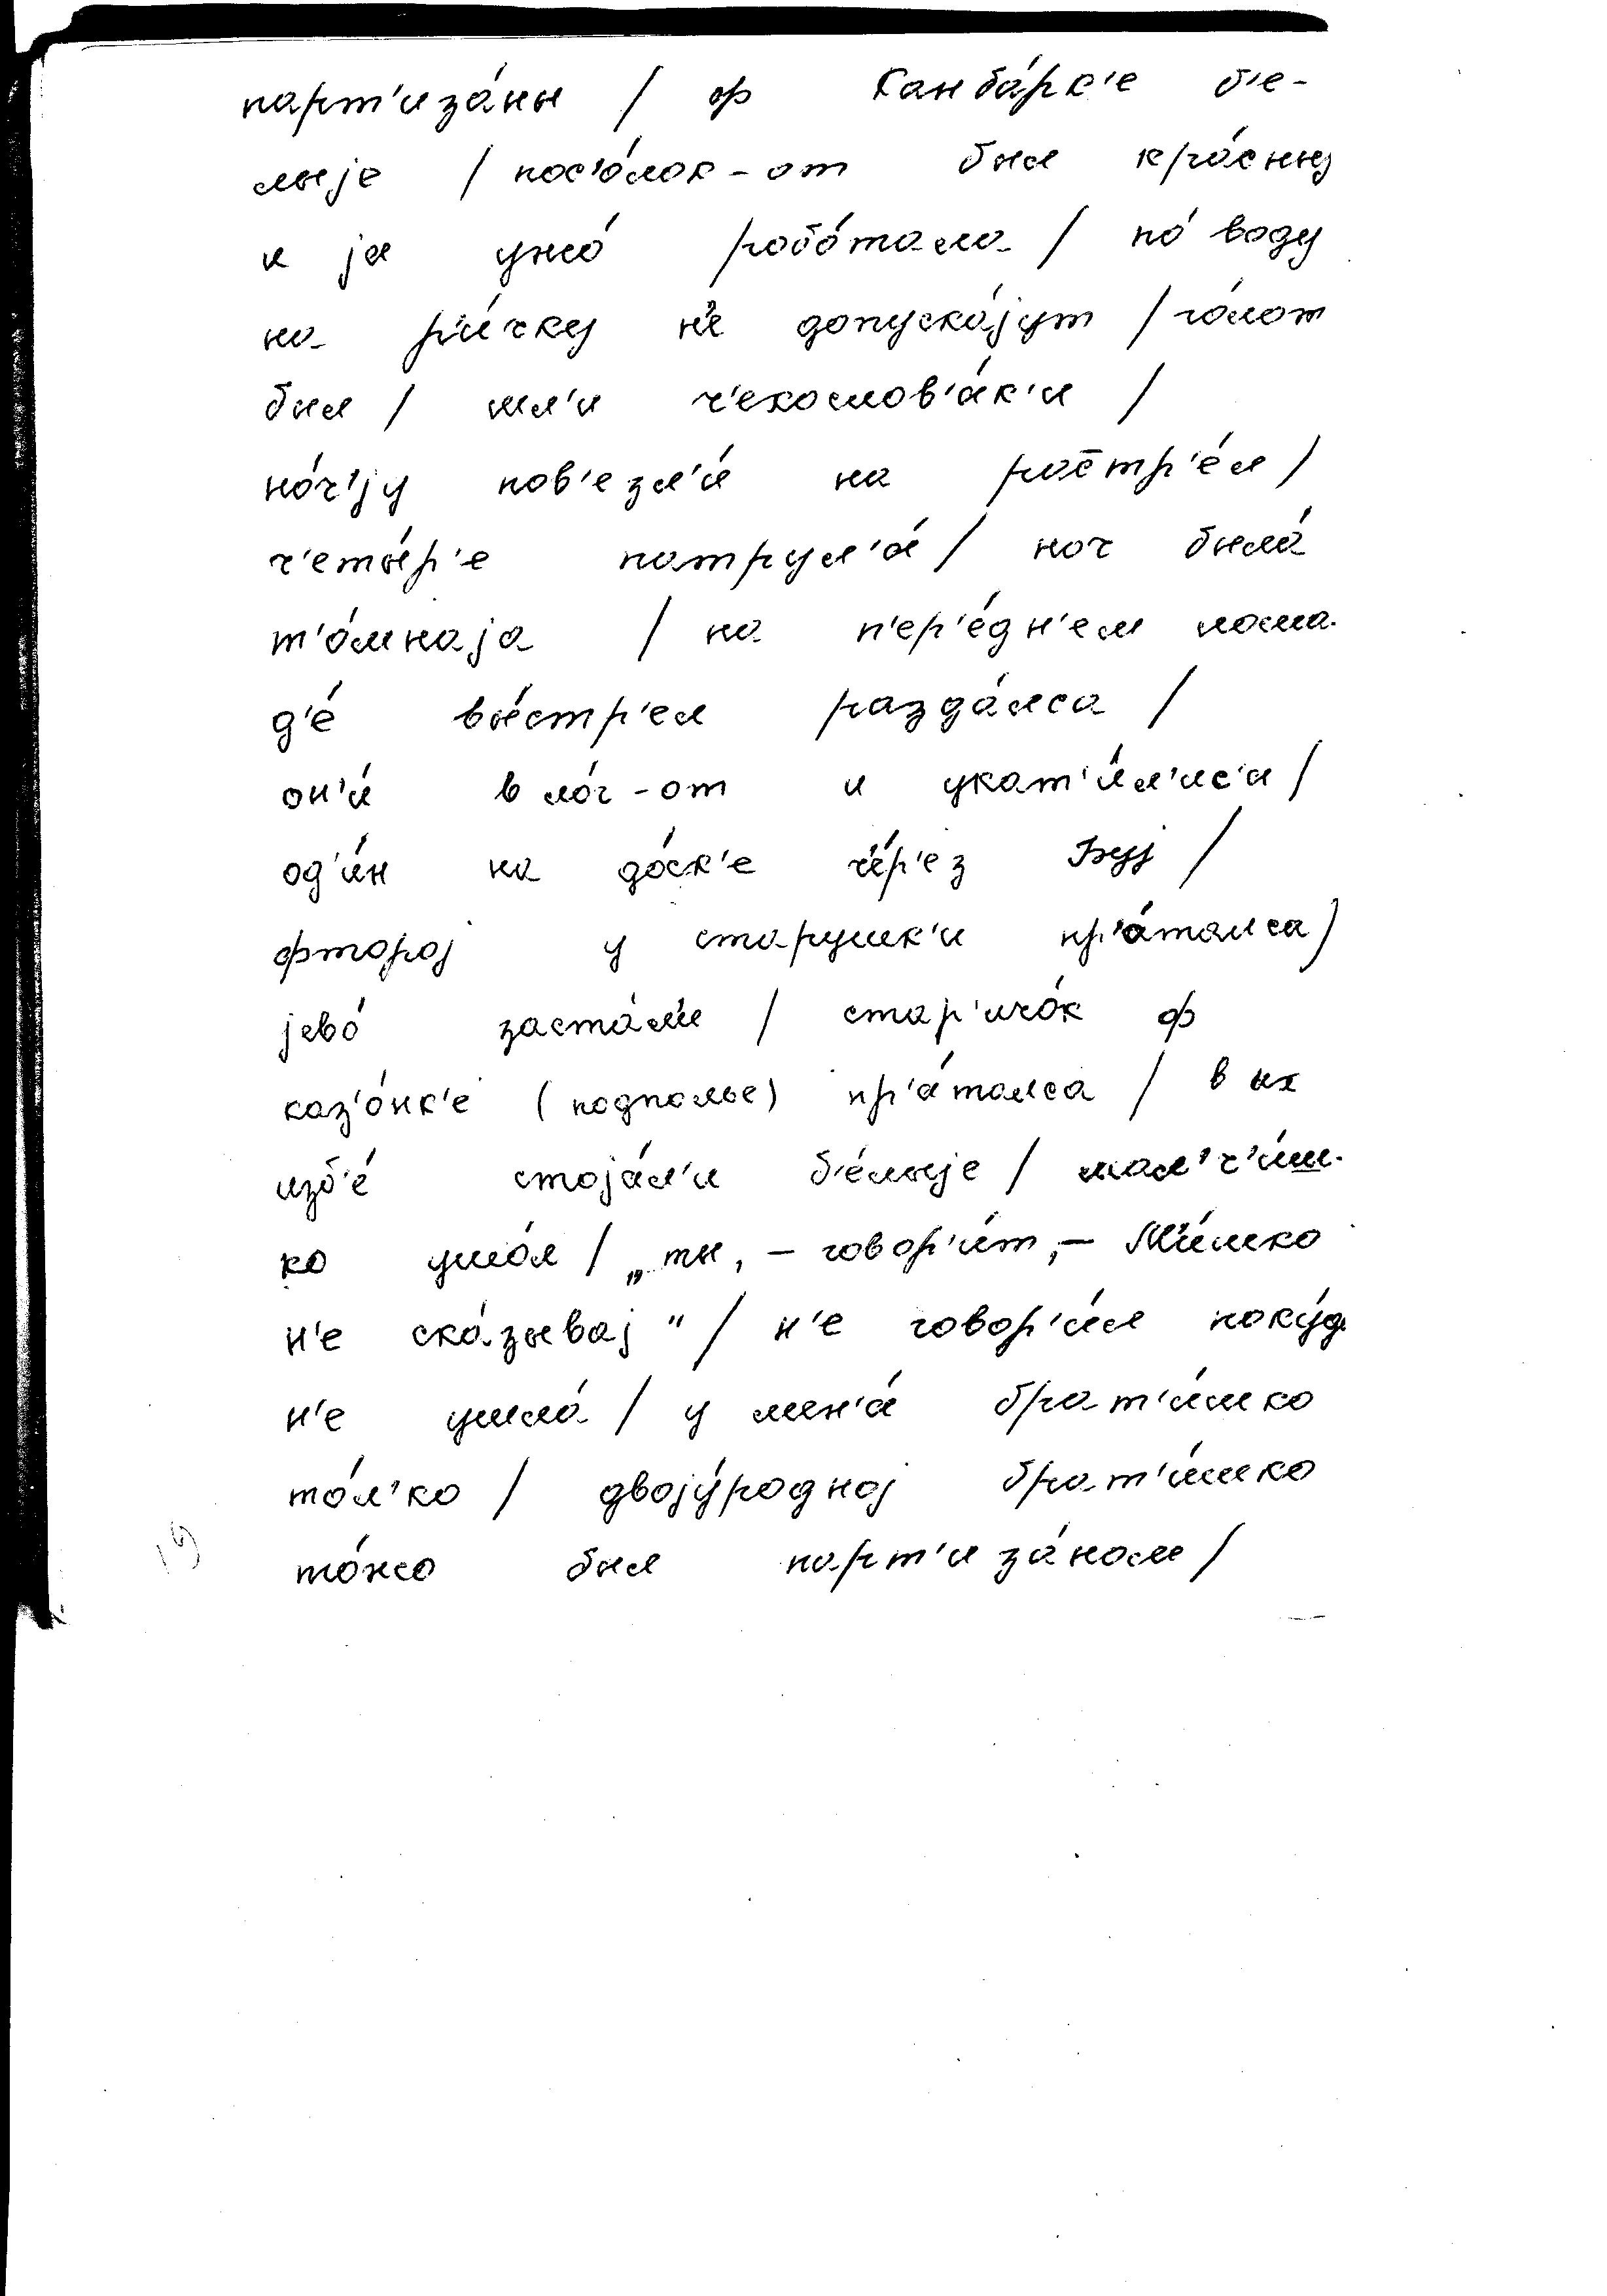 парт'иза́ны / ф Канба́рк'е б'е-
лыjе / пос'о́лок-от был кра́сны
и jа ужо́ робо́тала / по́ воду
на р'и́чку н'е допуска́jут / го́лот
был / шл'и ч'екослов'а́к'и /
но́ч'jу пов'езл'и́ на рас̄тр'е́л /
ч'еты́р'е патрул'а́ / ноч была́
т'о́мнаjа / на п'ер'е́дн'ем лоша-
д'е́ вы́стр'ел разда́лса /
он'и́ в ло́г-от и укат'и́л'ис'и /
од'и́н на до́ск'е ч'е́р'ез Буj /
фтороj у старушк'и пр'а́талса /
jево́ заста́л'и / стар'ичо́к ф
каз'о́нк'е (подполье) пр'а́талса / в их
изб'е́ стоjа́л'и б'е́лыjе / мал'ч'и́ш-
ко ушо́л / „ты, – говор'и́т, – М'и́шко
н'е ска́зываj" / н'е говор'и́л поку́д
н'е ушла́ / у мен'а́ брат'и́шко
то́л'ко / двоjу́родноj брат'и́шко
то́жо был парт'иза́ном /
19